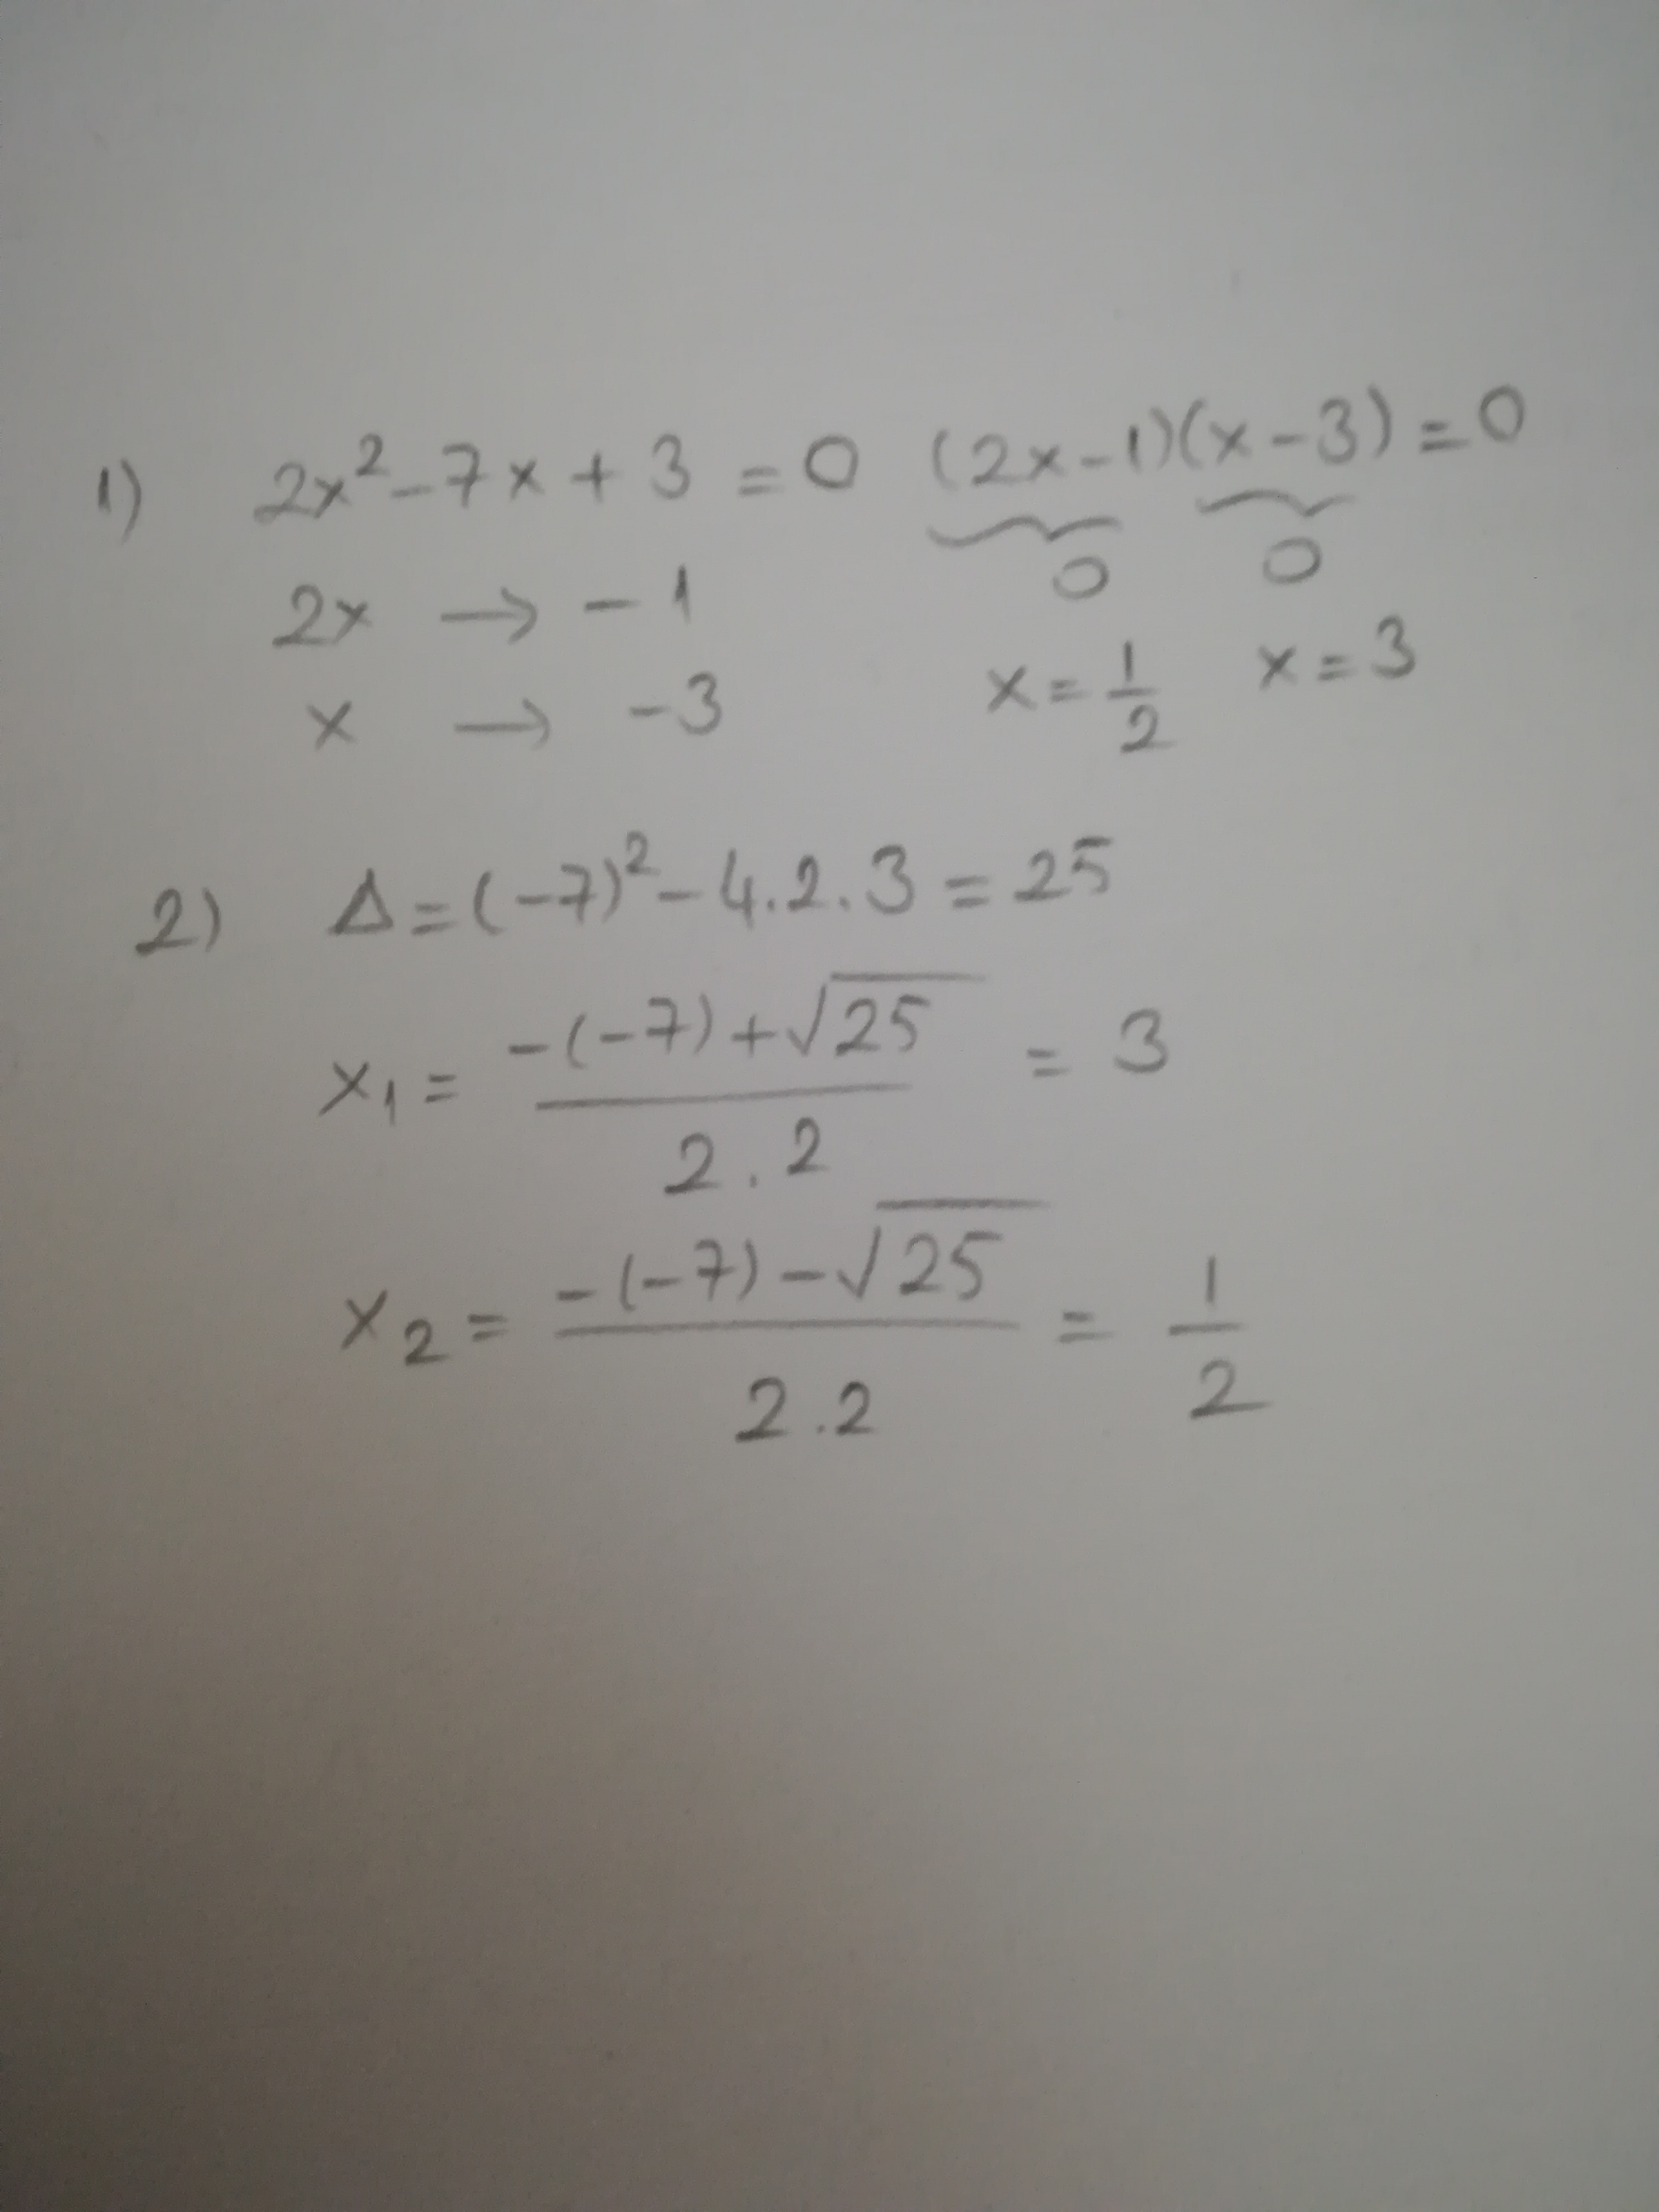 1) 2x² - 7x + 3 = 0 (2x-1)(x-3) = 0
2x → -1 0 0
x → -3 x = 1/2 x = 3
2) Δ = (-7)² - 4.2.3 = 25
x₁ = -(-7) + √25 / 2.2 = 3
x₂ = -(-7) - √25 / 2.2 = 1/2